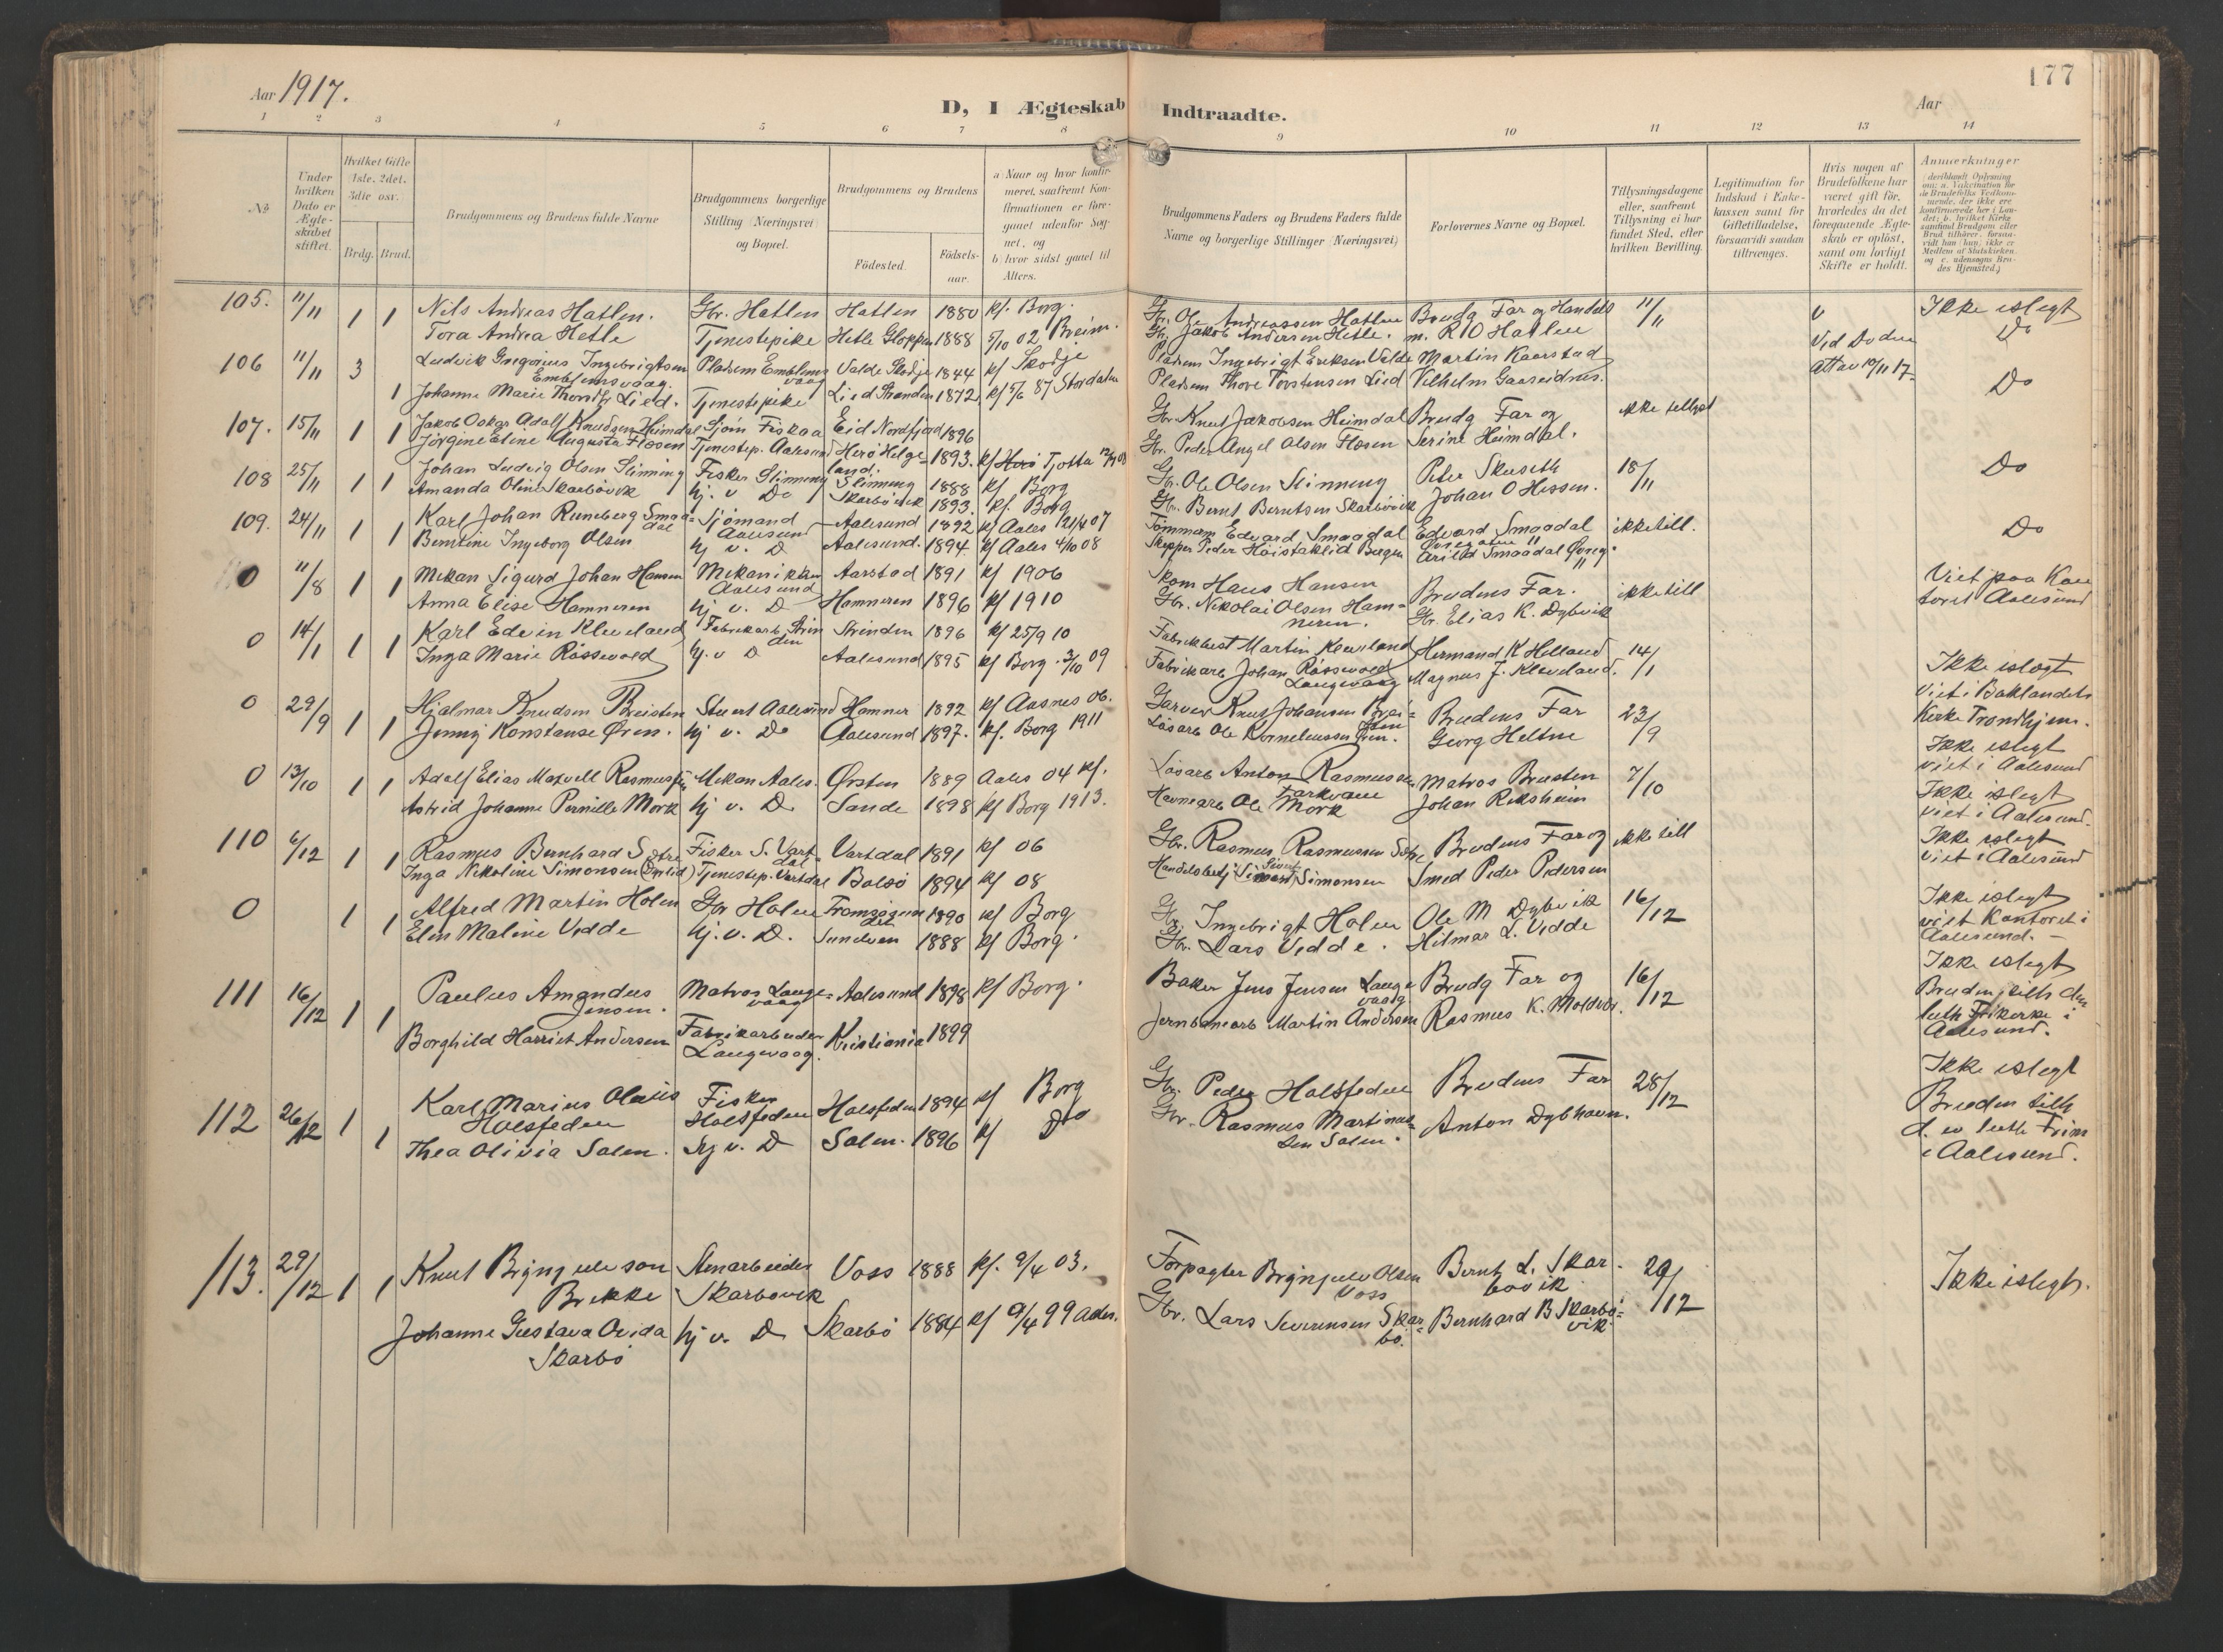 177
Aar 1917.
D, I Ægteskab Indtraadte.
Aar
1 2 3 4 5 6 7 8 9 10 11 12 13 14
No
Under hvilken Dato er Ægteskabet stiftet.
Hvilket Gifte 1ste. 2det. 3die osv.
Brdg. Brud.
Brudgommens og Brudens fulde Navne
Brudgommens borgerlige Stilling (Næringsvei) og Bopæl.
Brudgommens og Brudens
Fødested.
Fødselsaar.
a Naar og hvor konfirmeret, saafremt Konfirmationen er foregaaet udenfor Sognet, og
b hvor sidst gaaet til Alters.
Brudgommens Faders og Brudens Faders fulde Navne og borgerlige Stillinger (Næringsvei)
Forlovernes Navne og Bopæl.
Tillysningsdagene eller, saafremt Tillysning ei har fundet Sted, efter hvilken Bevilling.
Legitimation for Indskud i Enkekassen samt for Giftetilladelse, forsaavidt saadan tiltrænges.
Hvis nogen af Brudefolkene har været gift før, hvorledes da det foregaaende Ægteskab er opløst, samt om lovligt Skifte er holdt.
Anmærkninger
105. 11/11 1 1 Nils Andreas Hatlen. Gbr. Hatlen Hatlen 1880 kf. Borg. Gbr. Ole Andreassen Hatlen Brudg Far og Handels 11/11 Ikke eslegt
Tora Andrea Hetle Tjenestepike Hetle Gloppen 1888 5/10 02 Breim. Gbr. Jakob Andersen Hetle. m. R O Hatlen Do
106 11/11 3 Ludvik Gregorius Ingebrigtsen Pladsm Emblems Valde Skodje 1844 kf Skodje Pladsm Ingebrigt Eriksen Valde Martin Kaarstad Ved Døden
Emblemsvaag. vaag att av 10/11 17
1 Johanne Marie Thorsdtr Lied. Tjenestepike Lied Stranden 1872 kf 5/6 87 Stordalen Pladsm Thore Torstensen Lied Vilhelm Gaaseidnes. Do
107. 15/11 1 1 Jakob Oskar Adolf Knudsen Heimdal Sjøm Fiskaa Eid Nordfjord 1896 Gbr. Knut Jakobsen Heimdal Brudg Far og ikke tillyst
Jørgine Eline Augusta Flosen Tjenestep. Aalesund Herø Helgeland. 1893. kf Tjøtta Gbr. Peder Angel Olsen Flosen Serine Heimdal.
108 25/11 1 1 Johan Ludvig Olsen Slinning Fisker Slinning Slinning 1888 kf Borg Gbr. Ole Olsen Slinning Peter Skuseth 18/11 Do
Amanda Oline Skarbøvik hj. v Do Skarbøvik 1893. kf. Borg Gbr. Bernt Berntsen Skarbøvik Johan O Hessen.
109. 24/11 1 1 Karl Johan Runeberg Smaadal Sjømand Aalesund Aalesund 1892 kf Aales 21/4 07 Tømmerm Edvard Smaadal Edvard Smaadal ikke till. Do
Berntine Ingeborg Olsen hj v. D Aalesund. 1894. kf Aales 4/10 08 Skipper Peder Høistaklid Bergen Arild Smaadal
0 11/8 1 1 Mekan Sigurd Johan Hansen Mekaniker Aalesund Aarstad 1891 kf 1906 Skom Hans Hansen Brudens Far. ikke till Viet paa Kon
Anna Elise Hamneren hj v. D Hamneren 1896 kf 1910 Gbr. Nikolai Olsen Hamneren. Gbr. Elias K. Dybvik toret Aalesund
0 14/1 1 1 Karl Edvin Kleveland Fabrikarb Strinden Strinden 1896 kf 25/9 10 Fabrikbest Martin Kleveland Hermand K Helland 14/1
Inga Marie Røssevold hj. v D Aalesund 1895 kf Borg. 3/10 09 Fabrikarb Johan Røssevold Langevaag Magnus J. Kleveland. Ikke eslegt
Viet i Baklandets
Kirke Trondhjem.
0 29/9 1 1 Hjalmar Knudsen Breisten Stuert Aalesund Hamner 1892 kf Aasnes 06. Garver Knut Johansen Breisten Brudens Far 23/9
Jenny Konstanse Øren. hj v. Do Aalesund 1897. kf. Borg 1911 Løsarb Ole Korneliussen Øren. Georg Heltne Ikke eslegt
viet i Aalesund
0 13/10 1 1 Adolf Elias Maxvell Rasmussen Mekan Aales. Ørsten 1889 Aales 04 kf. Løsarb Anton Rasmussen Matros Breisten 7/10 Ikke eslegt
Astrid Johanne Pernille Mork hj v. D Sande 1898 kf Borg 1913. Havnearb Ole Mork Johan Reksheim viet i Aalesund.
110 6/12 1 1 Rasmus Bernhard Sætre Fisker S. Vartdal Vartdal 1891 kf 06 Gbr. Rasmus Rasmussen Sætre Brudens Far og ikke till Ikke eslegt
Inga Nikoline Simonsen Tjenestep. Vartdal Bolsø 1894 kf 08 Handelsbetj Sivert Simonsen Smed Peder Pedersen viet i Aalesund
0 1 1 Alfred Martin Holen Gbr Holen 1890 kf Borg Gbr. Ingebrigt Holen Ole M Dybvik 16/12 Ikke eslegt
Elen Maline Vedde hj. v. D. Sundven 1888 kf Borg. Gbr. Lars Vedde. Hilmar L. Vedde viet Kontoret i
Aalesund.
111 16/12 1 1 Paulus Amandus Jensen. Matros Langevaag Aalesund 1898 kf Borg. Baker Jens Jensen Langevaag Brudg Far og 16/12 Ikke eslegt
Borghild Harriet Andersen Fabrikarbeider Langevaag. Kristiania 1899 Jernbanearb Martin Andersen Rasmus K. Molvær. Bruden tilh den
luth Frikirke i
Aalesund.
112 26/12 1 1 Karl Marius Olaus Holsfeden Fisker Holsfeden Holsfeden 1894 kf Borg Gbr. Peder Holsfeden Brudens Far 28/12 Ikke eslegt
Thea Olivia Solem. hj v. D Solem. 1896 kf Do Gbr. Rasmus Martinussen Solem. Anton Dybhavn. Bruden tilh
d. ev luth Frim
i Aalesund.
113. 29/12 1 1 Knut Brynjulvson Brekke Stenarbeider Skarbøvik Voss 1888 kf. 9/4 03. Forpagter Brynjulv Olsen Voss Bernt L. Skarbøvik 29/12 Ikke eslegt.
Johanne Gustava Ovida Skarbø hj v. D Skarbø 1884 kf 9/4 99 Gbr. Lars Severinsen Skarbø. Bernhard B Skarbøvik